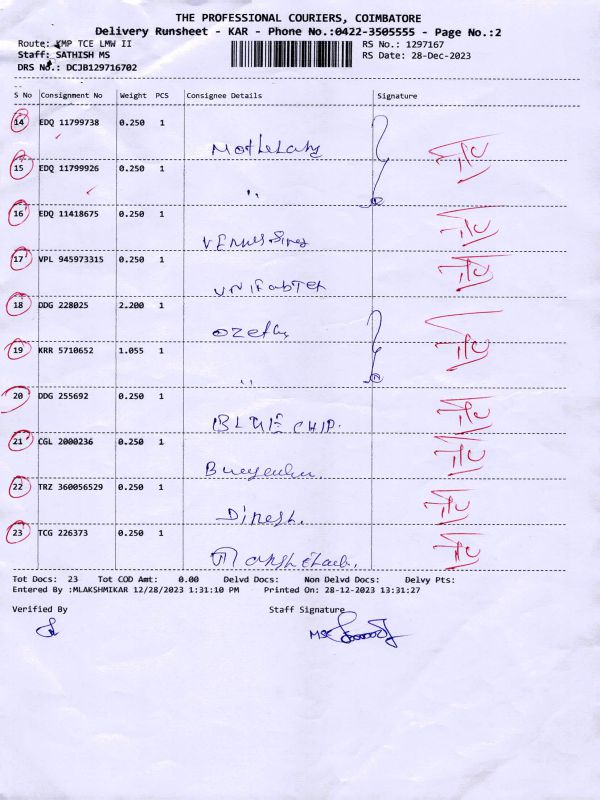 THE PROFESSIONAL COURIERS, COIMBATORE
Delivery Runsheet - KAR - Phone No.:0422-3505555 - Page No.:2
Route: KMP TCE LMW II RS No.: 1297167
Staff: SATHISH MS RS Date: 28-Dec-2023
DRS No.: DCJB129716702
S No Consignment No Weight PCS Consignee Details Signature
14 EDQ 11799738 0.250 1
15 EDQ 11799926 0.250 1
"
16 EDQ 11418675 0.250 1
17 VPL 945973315 0.250 1
UNIFabTEK
18 DDG 228025 2.200 1
19 KRR 5710652 1.055 1
"
20 DDG 255692 0.250 1
BLUE CHIP.
21 CGL 2000236 0.250 1
22 TRZ 360056529 0.250 1
Dinesh.
23 TCG 226373 0.250 1
Tot Docs: 23 Tot COD Amt: 0.00 Delvd Docs: Non Delvd Docs: Delvy Pts:
Entered By :MLAKSHMIKAR 12/28/2023 1:31:10 PM Printed On: 28-12-2023 13:31:27
Verified By Staff Signature